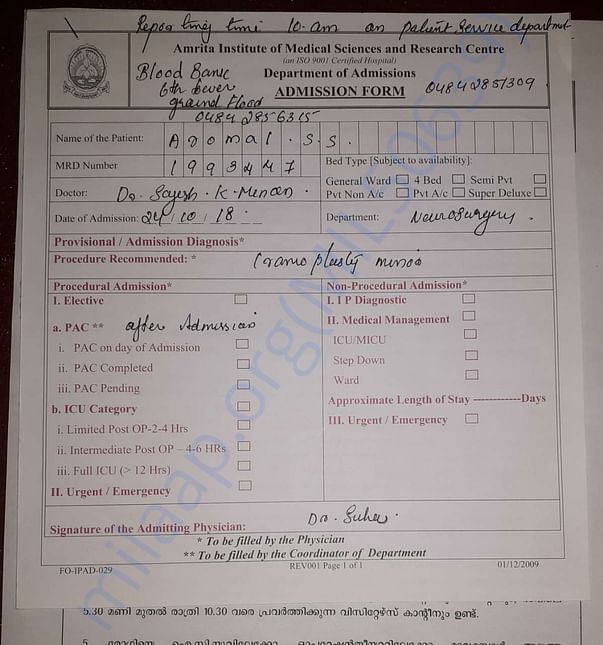 Reporting time 10-am on patient service department
Amrita Institute of Medical Sciences and Research Centre
(an ISO 9001 Certified Hospital)
Department of Admissions
ADMISSION FORM
Blood Bank
6th tower
ground Flood
0484 2851309
0484 2856315
Name of the Patient: A
S. S.
MRD Number 1993447
Bed Type [Subject to availability]:
General Ward 4 Bed Semi Pvt
Pvt Non A/c Pvt A/c Super Deluxe
Doctor: Dr. Sajesh . K. Menon
Date of Admission: 24/10/18
Department: Neurosurgery .
Provisional / Admission Diagnosis*
Procedure Recommended: * Cranioplasty minor
Procedural Admission*
Non-Procedural Admission*
I. Elective
I. I P Diagnostic
a. PAC ** after Admission
II. Medical Management
i. PAC on day of Admission
ICU/MICU
ii. PAC Completed
Step Down
iii. PAC Pending
Ward
b. ICU Category
Approximate Length of Stay ------------Days
i. Limited Post OP-2-4 Hrs
III. Urgent / Emergency
ii. Intermediate Post OP – 4-6 HRs
iii. Full ICU (> 12 Hrs)
II. Urgent / Emergency
Signature of the Admitting Physician: Dr.
* To be filled by the Physician
** To be filled by the Coordinator of Department
FO-IPAD-029
REV001 Page 1 of 1
01/12/2009
5.30 മണി മുതൽ രാത്രി 10.30 വരെ പ്രവർത്തിക്കുന്ന വിസിറ്റേഴ്സ് കാന്റീനും ഉണ്ട്.